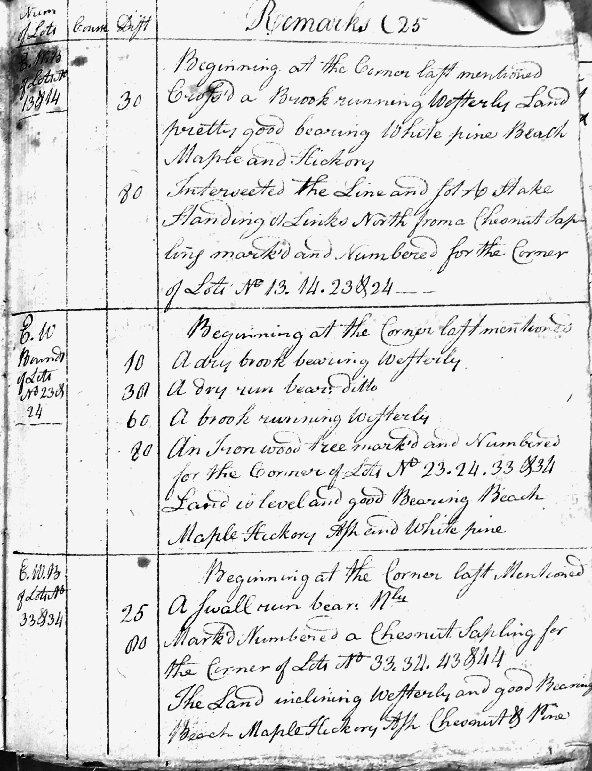 Num of Lots Course Dist Remarks (25
E. W. B of Lots No 13 & 14
Beginning at the Corner last mentioned
30 Cross'd a Brook running Westerly Land
pretty good bearing White pine Beach
Maple and Hickory
80 Intersected the Line and sot A Stake
Standing Links North from a Chesnut Sap-
ling mark'd and Numbered for the Corner
of Lots No 13. 14. 23 & 24
E. W Bounds of Lots No 23 & 24
Beginning at the Corner last mentiond
10 A dry brook bearing Westerly
30 A Dry run bear. ditto
60 A brook running Westerly
80 An Iron wood tree mark'd and Numbered
for the Corner of Lots No 23. 24. 33 & 34
Land is level and good Bearing Beach
Maple Hickory Ash and White pine
E. W. B of Lots No 33 & 34
Beginning at the Corner last Mentioned
25 A small run bear.
80 Mark'd Numbered a Chesnut Sapling for
the Corner of Lots No 33. 34. 43 & 44
The Land inclining Westerly and good Bearing
Beach Maple Hickory Ash Chesnut & Pine